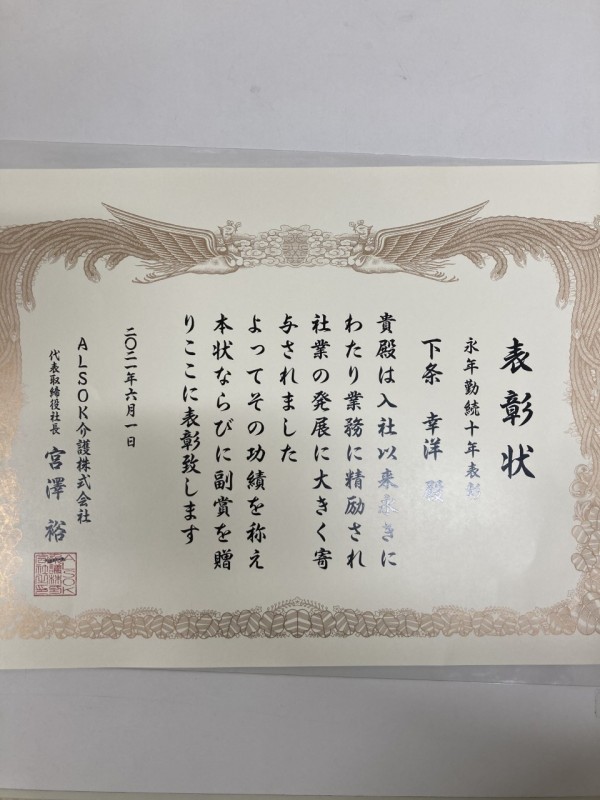 表彰状
永年勤続十年表彰
下条 幸洋 殿
貴殿は入社以来永きに
わたり業務に精励され
社業の発展に大きく寄
与されました
よってその功績を称え
本状ならびに副賞を贈
りここに表彰致します
二〇二一年六月一日
ALSOK介護株式会社
代表取締役社長 宮澤 裕一